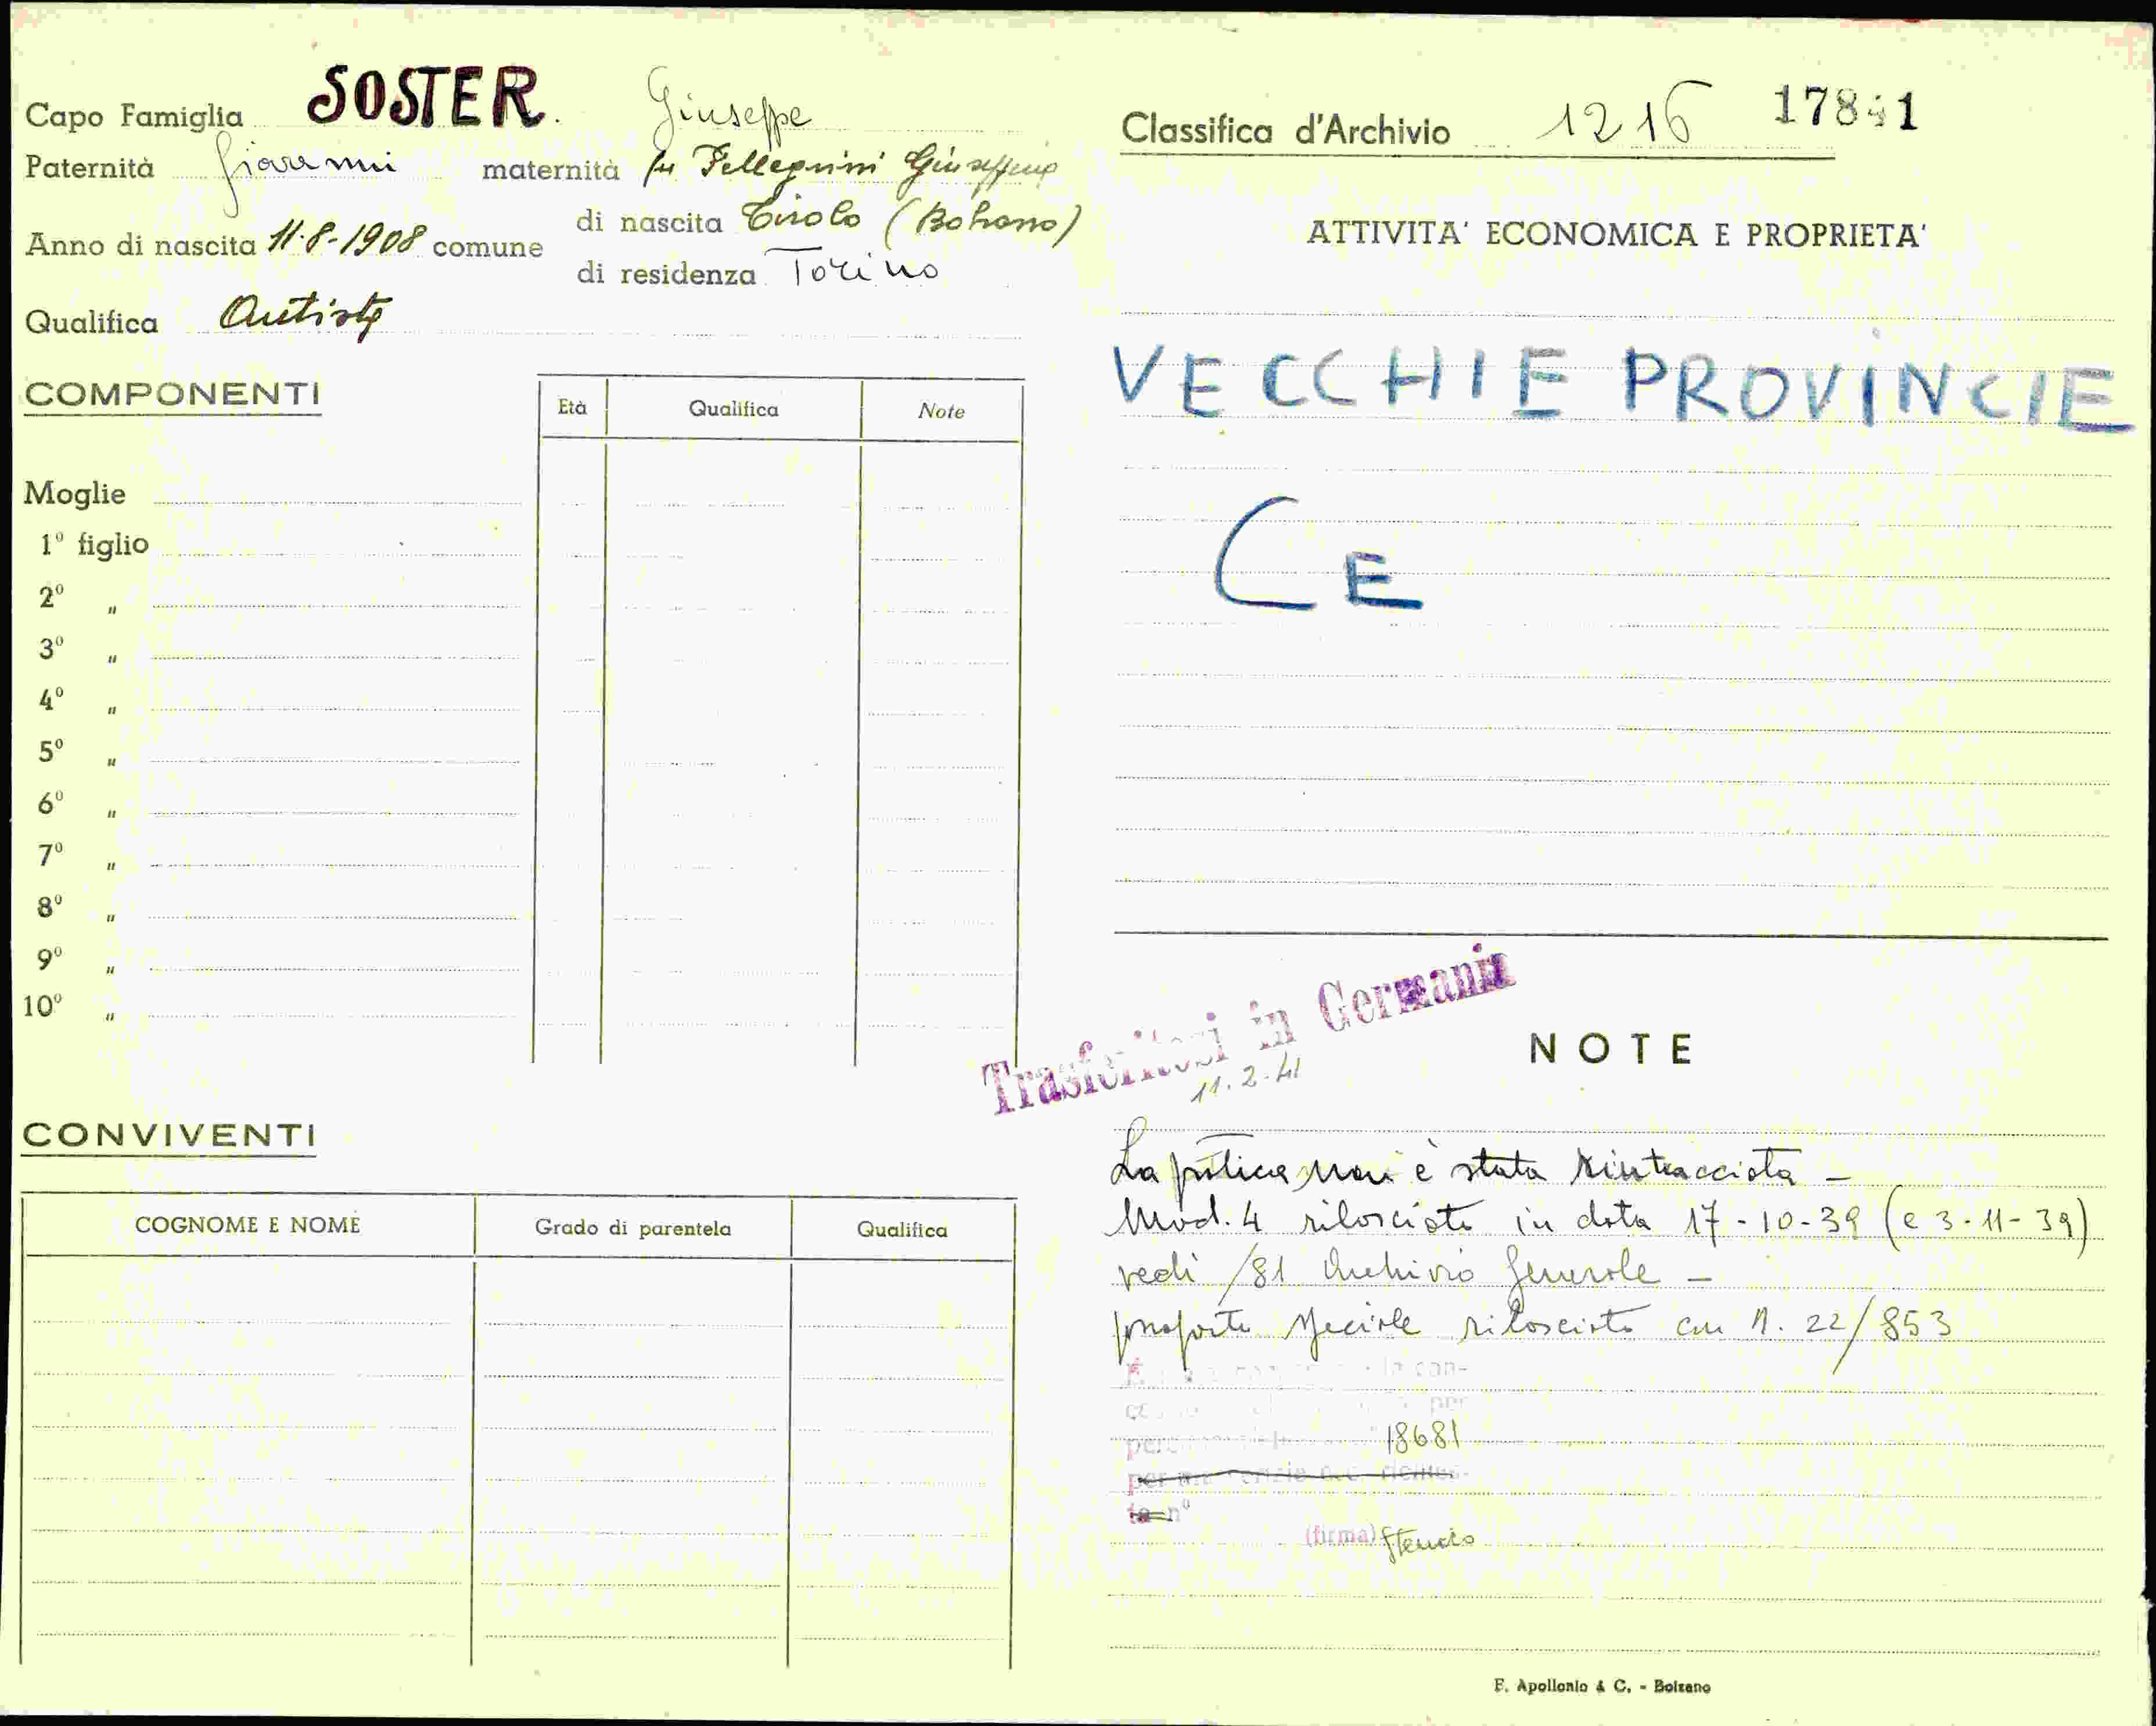 Capo Famiglia SOSTER. Giuseppe
Paternità Giovanni maternità fu Pellegrini Giuseppina
Anno di nascita 11-8-1908 comune di nascita Tirolo (Bolzano)
di residenza Torino
Qualifica Autista
COMPONENTI
Età Qualifica Note
Moglie
1º figlio
2º "
3º "
4º "
5º "
6º "
7º "
8º "
9º "
10º "
CONVIVENTI
COGNOME E NOME Grado di parentela Qualifica
Classifica d'Archivio 1216 17841
ATTIVITA' ECONOMICA E PROPRIETA'
VECCHIE PROVINCIE
CE
Trasferitosi in Germania
11.2.41
NOTE
La pratica non è stata rintracciata -
Mod. 4 rilasciato in data 17-10-39 (e 3-11-39)
vedi /81 Archivio Generale -
passaporto speciale rilasciato con n. 22/853
la con-
per
18681
nº
(firma)
F. Apollonio & C. - Bolzano